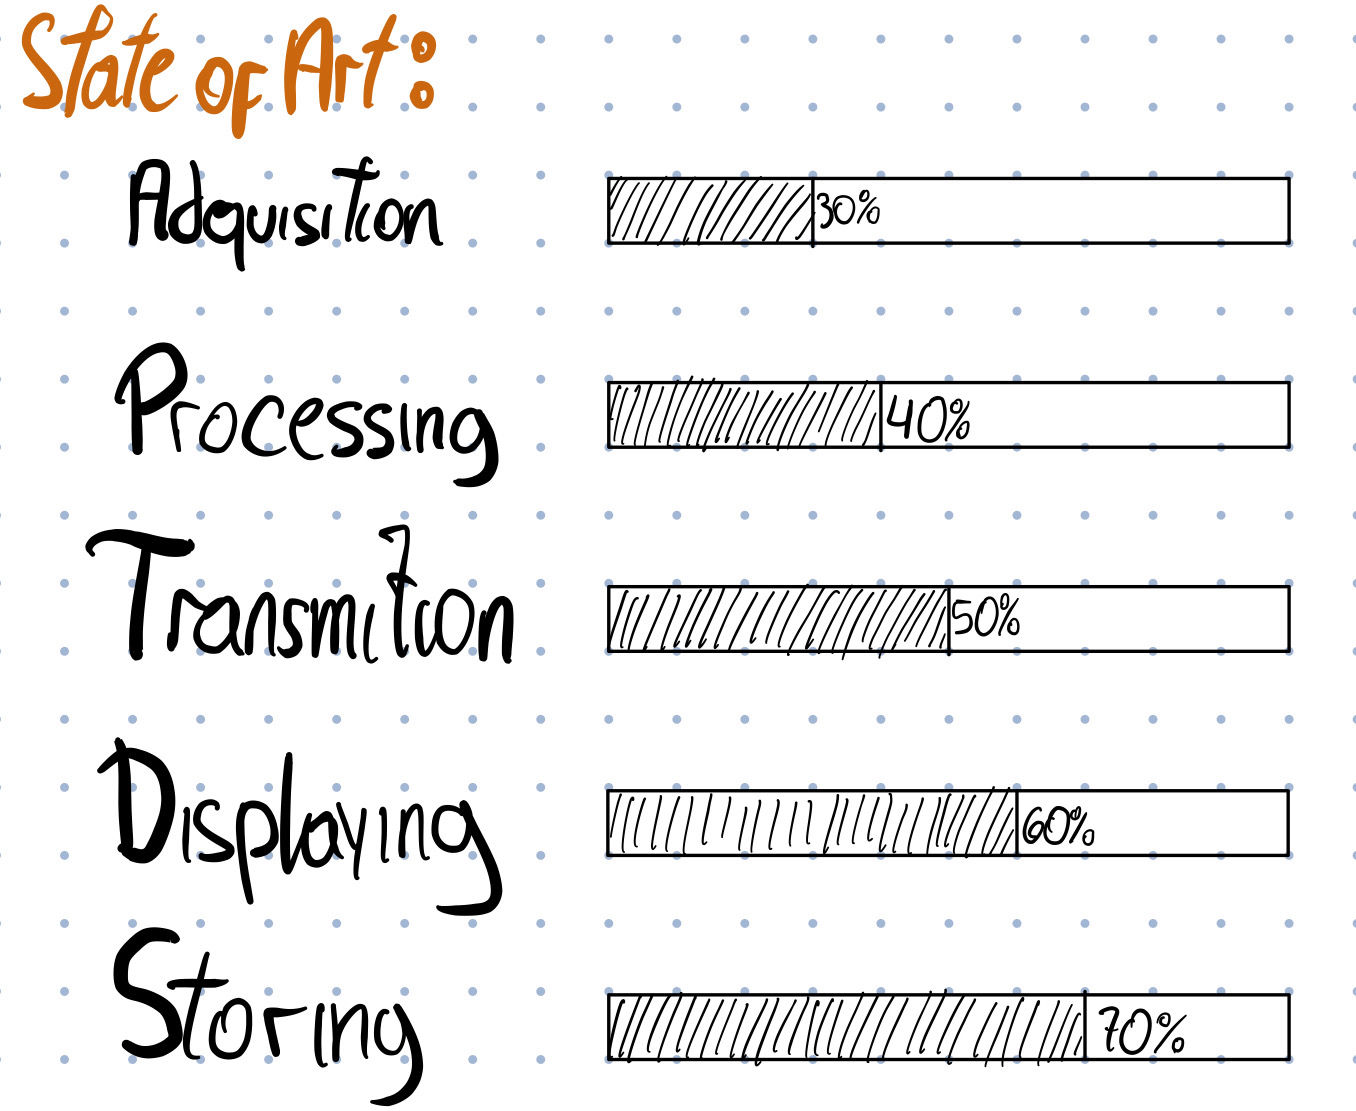 State of Art:
Adquisition 30%
Processing 40%
Transmition 50%
Displaying 60%
Storing 70%